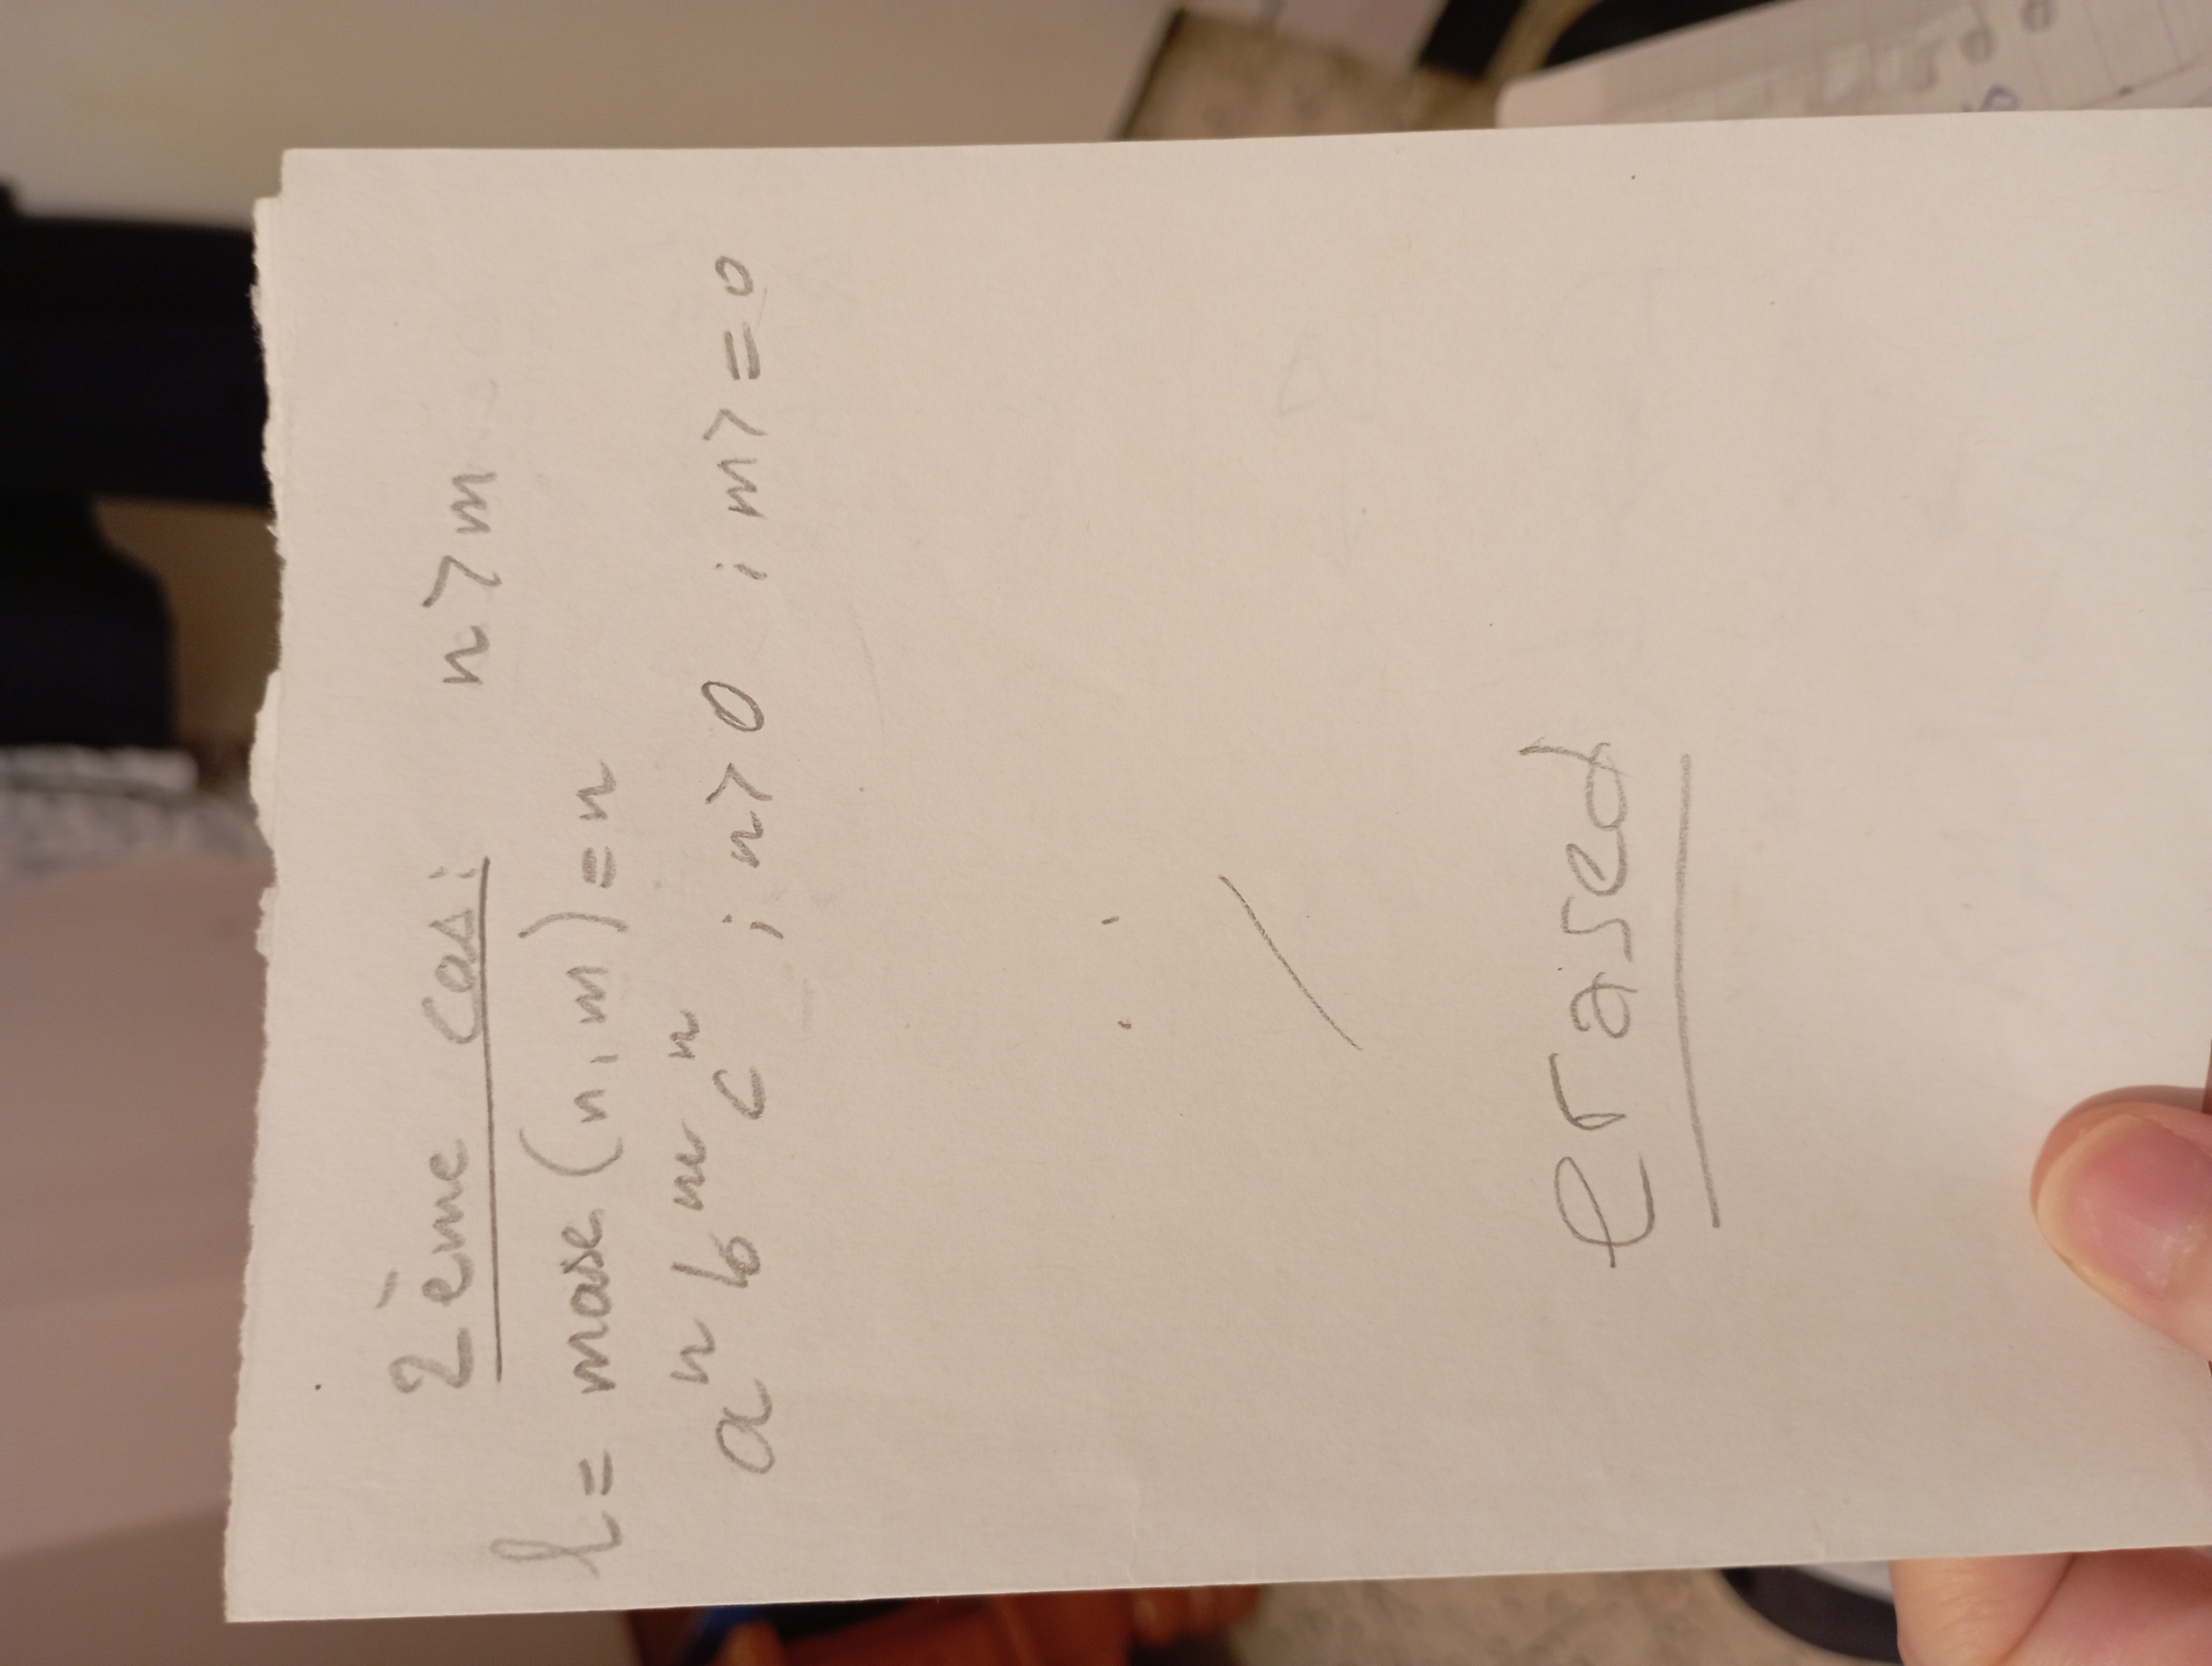 2ème cas: n>m
l= max(n,m)=n
aⁿ bᵐ cⁿ ; n>0 ; m>=0
erased